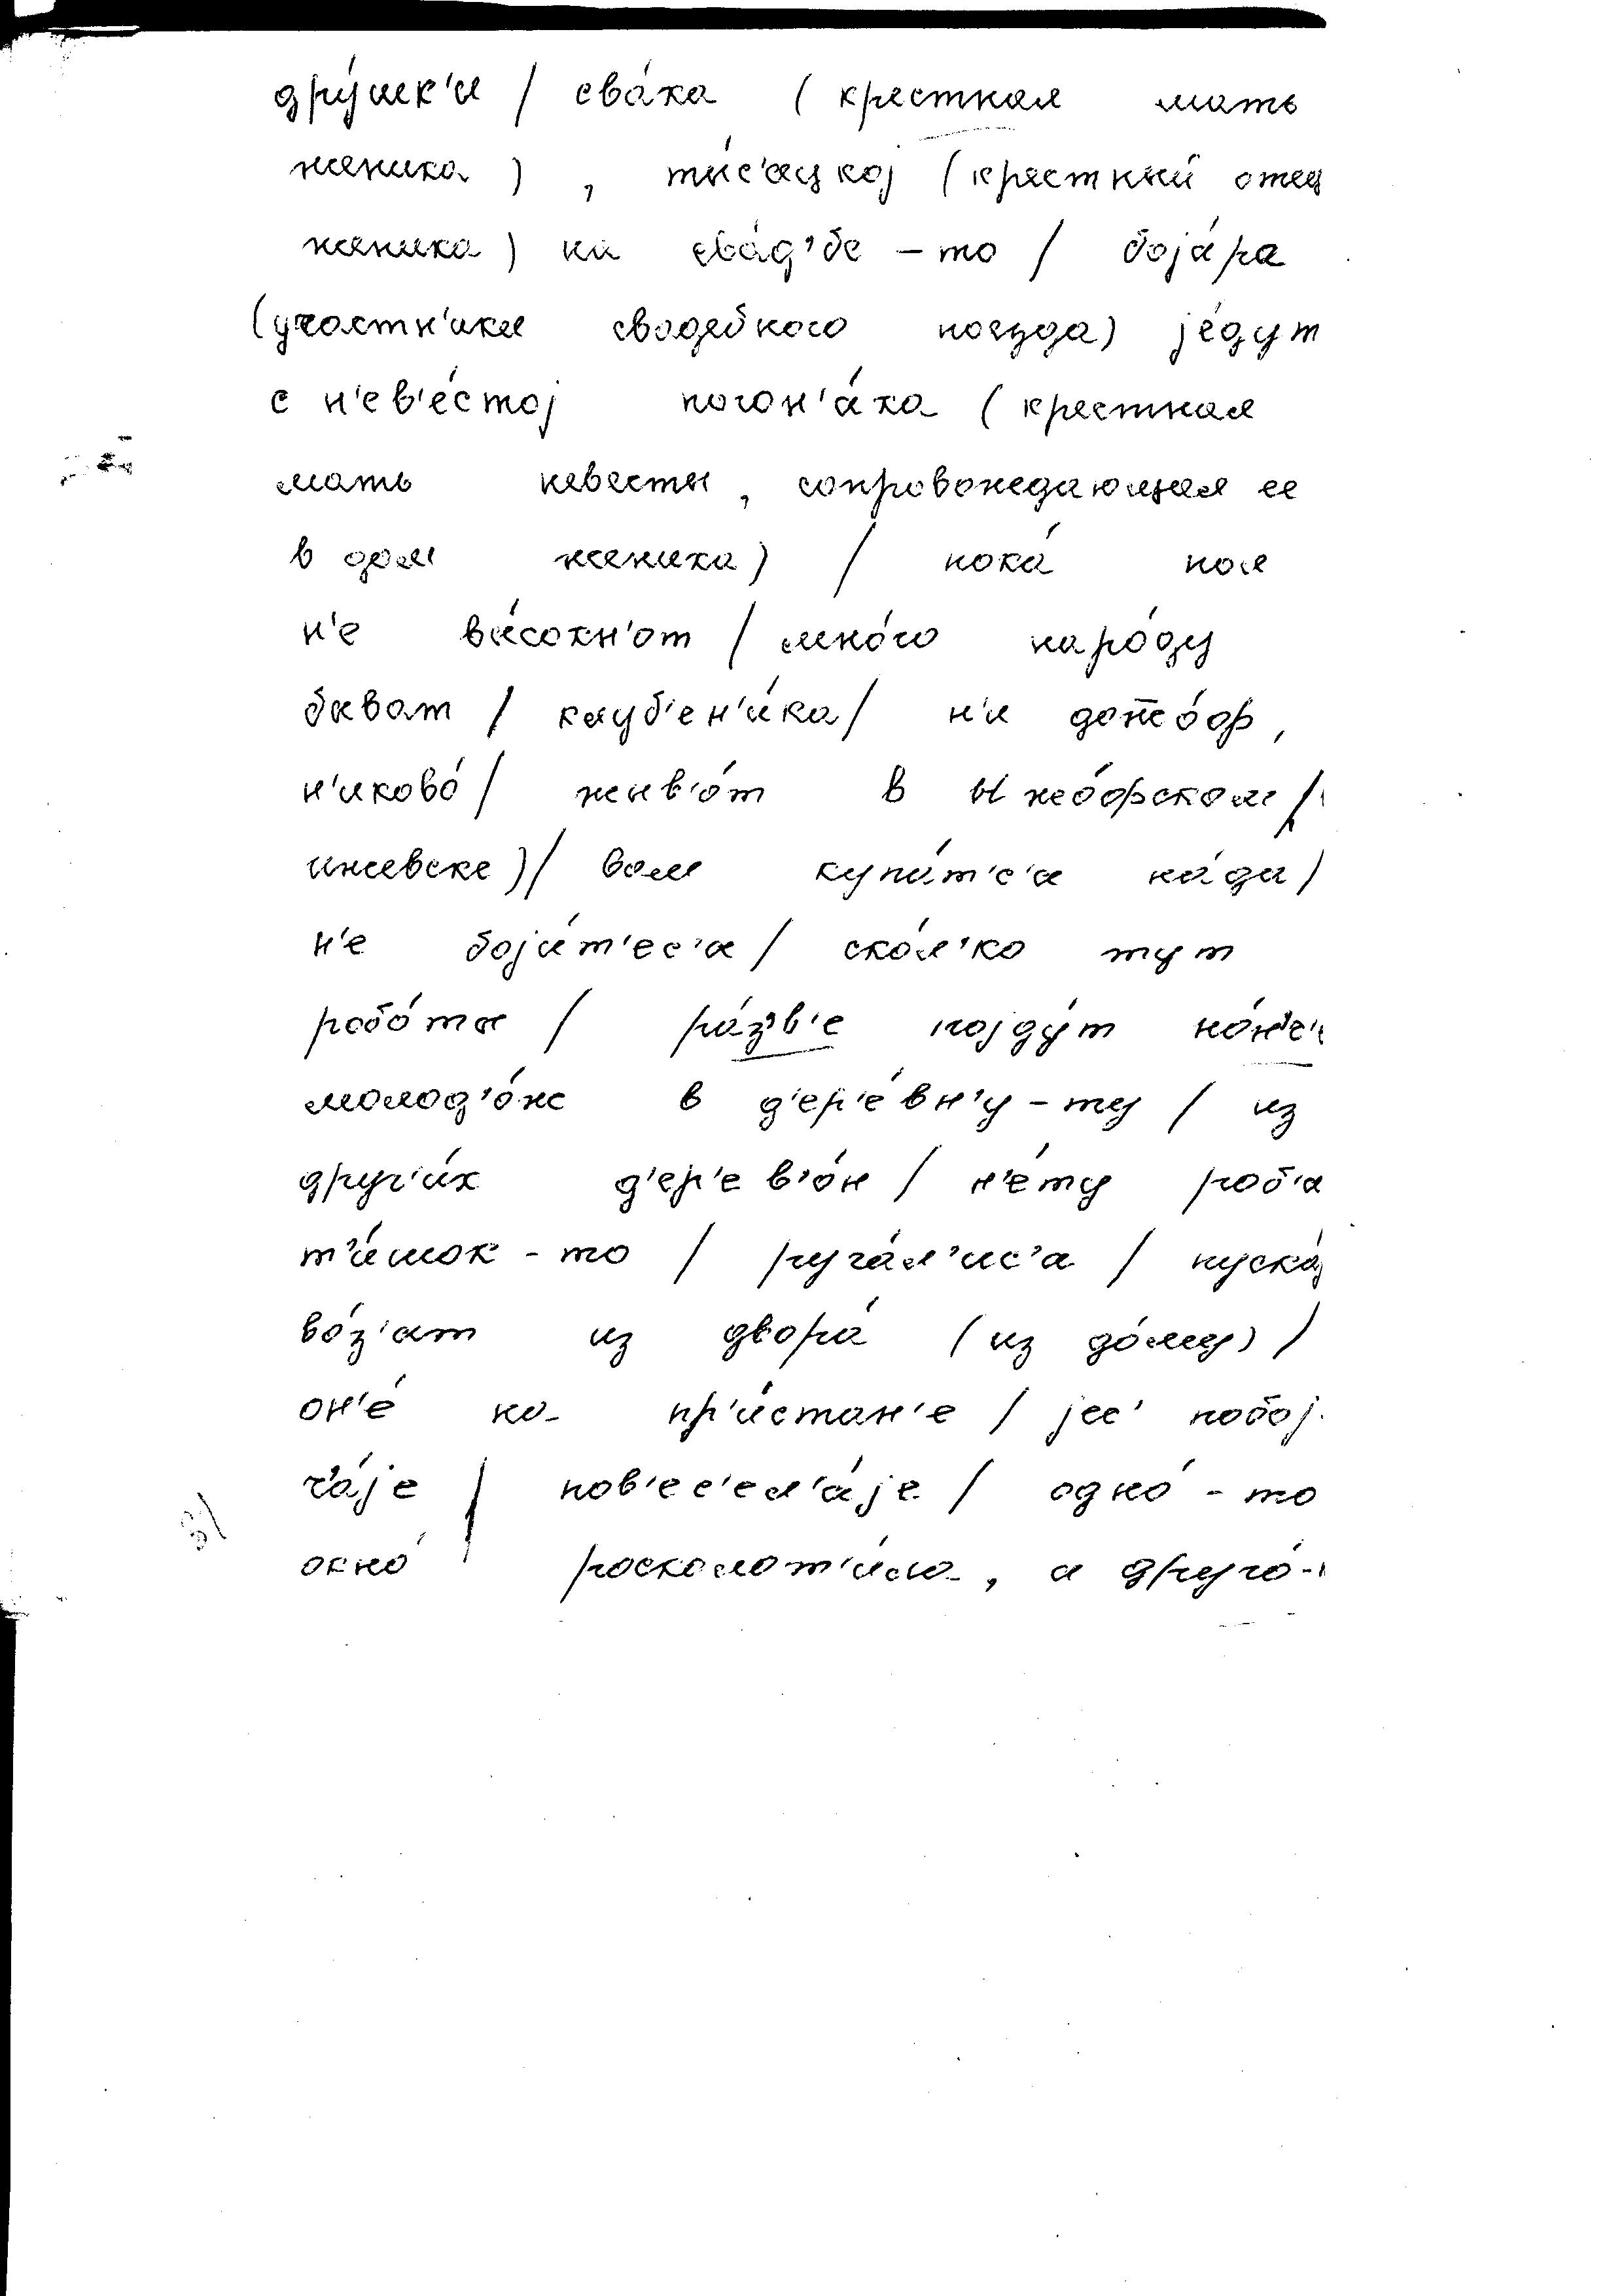 дру́шк'и / сва́ха ( крестная мать
жениха ) , ты́с'ацкоj ( крестный отец
жениха ) на сва́д'бе - то / боjа́ра
(участн'ики свадебного поезда) jе́дут
с н'ев'е́стоj погон'а́ха ( крестная
мать невесты , сопровождающая ее
в дом жениха) / пока́ пол
н'е вы́сохн'от / мно́го наро́ду
быват / клуб'ен'и́ка / н'и
н'иково́ / жыв'о́т в
ижевске) / вам купа́т'с'а на́да /
н'е боjа́т'ес'а / ско́л'ко тут
робо́ты / ра́з'в'е поjду́т
молод'о́ж в д'ер'е́вн'у - ту / из
друг'и́х д'ер'ев'о́н / н'е́ту роб'а
т'и́шок - то / руга́л'ис'а / пуска́j
во́з'ат из двора́ (из до́му) /
он'е́ на пр'и́стан'е / jес' побоj
ча́jе / пов'ес'ел'а́jе / одно́ - то
окно́ расколот'и́ло , а друго́ -